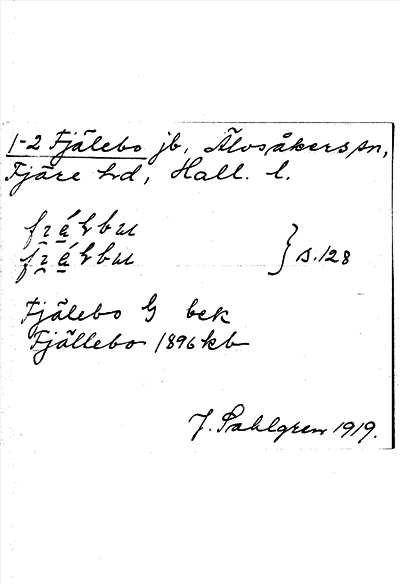 1-2 Fjälebo jb, Älvsåkers sn,
Fjäre hd, Hall. l.
} s. 128
Fjälebo G bek
Fjällebo 1896 kb
J. Sahlgren 1919.